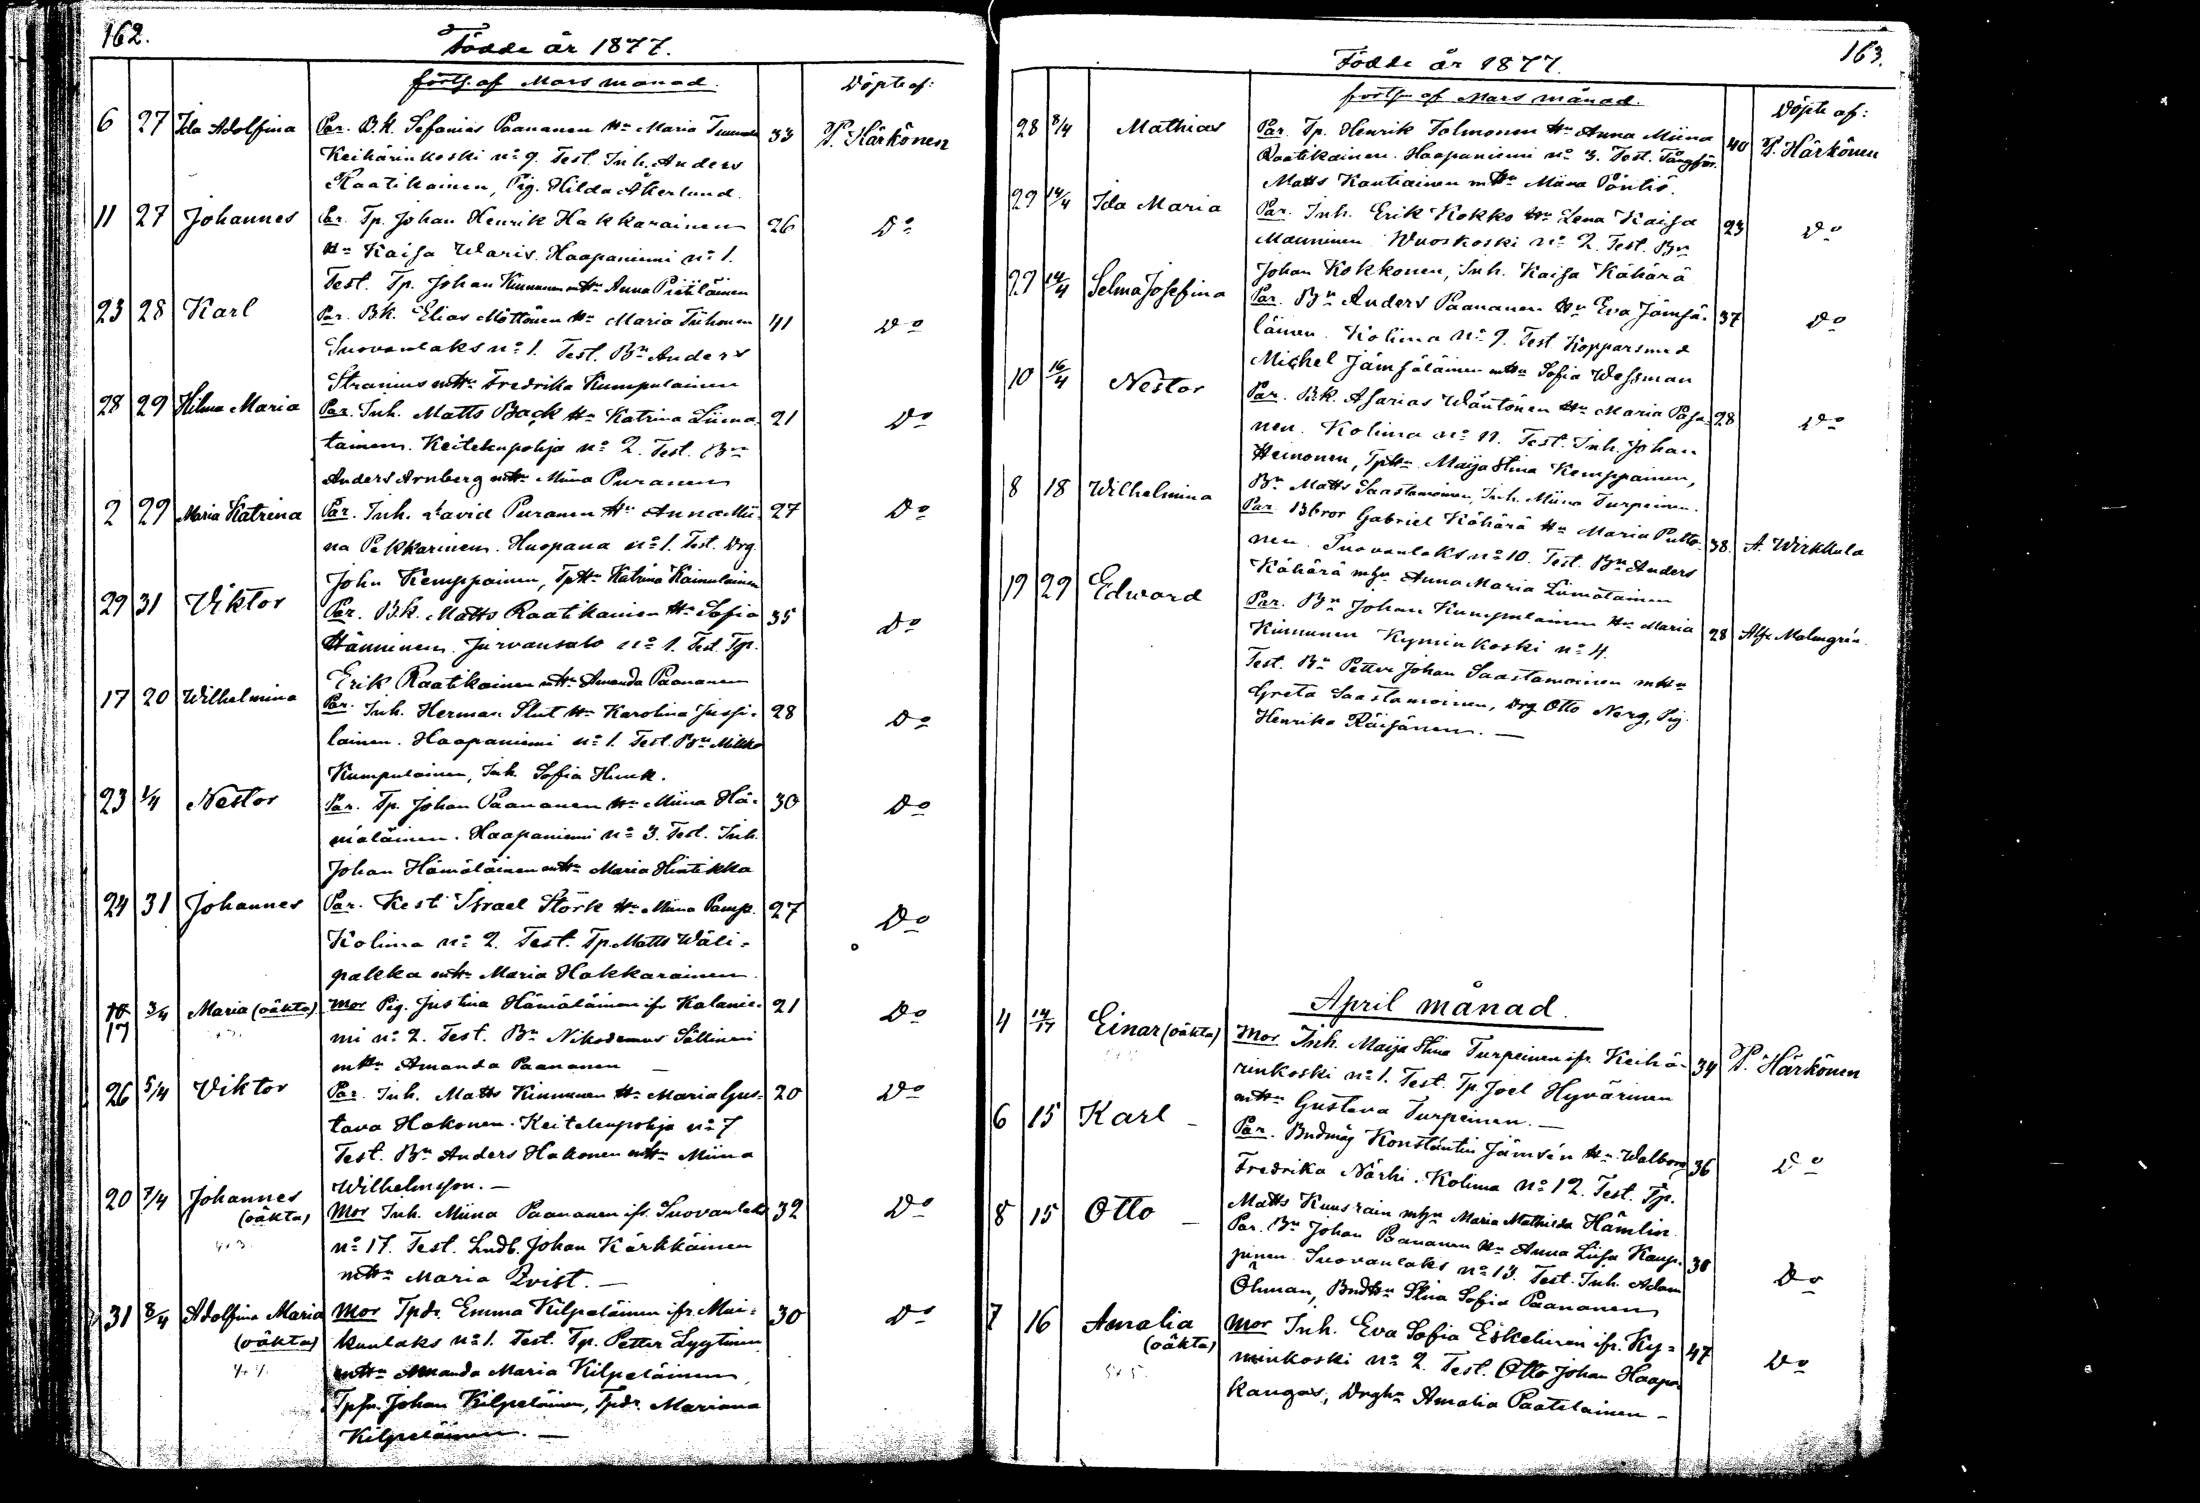 162.
Födde år 1877.
forts. af Mars månad.
Döpte af:
6 27 Ida Adolfina Par. B.k. Sefanias Paananen Hu Maria 33 P. Härkönen
Keihärinkoski No 9. Test. Inh. Anders
Raatikainen, Pig. Hilda Åkerlund.
11 27 Johannes Par. Tp. Johan Henrik Hakkarainen 26 Do
Hu Kaisa Waris. Haapaniemi No 1.
Test. Tp. Johan Kinnunen m Hu Anna Piiläinen
23 28 Karl Par. B.k. Elias Möttönen Hu Maria Tiihonen 41 Do
Suovanlaks No 1. Test. Bn Anders
Stranius m Hu Fredrika Kumpulainen
28 29 Hilma Maria Par. Inh. Matts Back Hu Katrina Liima- 21 Do
tainen. Keitelenpohja No 2. Test. Bn
Anders Arnberg m Hu Miina Puranen
2 29 Maria Katrina Par. Inh. David Puranen Hu Anna Mii- 27 Do
na Pekkarinen. Huopana No 1. Test. Drg.
John Kemppainen, Tp Hu Katrina Kainulainen
29 31 Viktor Par. B.k. Matts Raatikainen Hu Sofia 35 Do
Hänninen. Jurvansalo No 1. Test. Tp.
Erik Raatikainen m Hu Amanda Paananen
17 20 Wilhelmina Par. Inh. Herman Slut Hu Karolina Jussi- 28 Do
lainen. Haapaniemi No 1. Test. Bn Mikko
Kumpulainen, Inh. Sofia Huuk.
23 1/4 Nestor Par. Tp. Johan Paananen Hu Miina Hä- 30 Do
mäläinen. Haapaniemi No 3. Test. Inh.
Johan Hämäläinen m Hu Maria Hintikka
24 31 Johannes Par. Kest Israel Störk Hu Miina Pamp. 27 Do
Kolima No 2. Test. Tp. Matts Wäli-
pakka m Hu Maria Hakkarainen
17 3/4 Maria (oäkta) Mor Pig. Justina Hämäläinen ifr. Kalanie- 21 Do
mi No 2. Test. Bn Nikodemus Sällinen
m Hu Amanda Paananen —
26 5/4 Viktor Par. Inh. Matts Kinnunen Hu Maria Gus- 20 Do
tava Hakonen. Keitelenpohja No 7
Test. Bn Anders Hakonen m Hu Miina
Wilhelmsson. —
20 7/4 Johannes (oäkta) Mor Inh. Miina Paananen ifr. Suovanlaks 32 Do
No 17. Test. Johan Kärkkäinen
m Hu Maria Qvist. —
31 8/4 Adolfina Maria (oäkta) Mor Tpdr. Emma Kilpeläinen ifr. Mui- 30 Do
kunlaks No 1. Test. Tp. Petter Lyytinen
m Hu Amanda Maria Kilpeläinen,
Tpsn. Johan Kilpeläinen, Tpdr. Mariana
Kilpeläinen. —
163.
Födde år 1877.
forts. af Mars månad.
Döpte af:
28 8/4 Mathias Par. Tp. Henrik Tolmonen Hu Anna Miina 40 P. Härkönen
Raatikainen. Haapaniemi No 3. Test. Tångför.
Matts Kautiainen m Hu Miina Pöntiö.
29 14/4 Ida Maria Par. Inh. Erik Kokko Hu Lena Kaisa 23 Do
Manninen Wuoskoski No 2. Test. Bn
Johan Kokkonen, Inh. Kaisa Kähärä
27 14/4 Selma Josefina Par. Bn Anders Paananen Hu Eva Jämsä- 37 Do
läinen. Kolima No 9. Test Kopparsmed
Michel Jämsäläinen m Hu Sofia Wessman
10 16/4 Nestor Par. B.k. Asarias Wäntönen Hu Maria Pasa- 28 Do
nen. Kolima No 11. Test. Inh. Johan
Heinonen, Tp Hu Maija Stina Kemppainen,
Bn Matts Saastamoinen, Inh. Miina Turpeinen.
8 18 Wilhelmina Par. Bbror Gabriel Kähärä Hu Maria Putto- 38 A. Wirkkula
nen. Suovanlaks No 10. Test. Bn Anders
Kähärä m Hu Anna Maria Liimatainen
19 29 Edward Par. Bn Johan Kumpulainen Hu Maria 28 Alfr. Malmgrén.
Kinnunen Kyminkoski No 4.
Test. Bn Petter Johan Saastamoinen m Hu
Greta Saastamoinen, Drg Otto Nerg, Pig.
Henrika Räisänen. —
April månad.
4 14/4 Einar (oäkta) Mor Inh. Maija Stina Turpeinen ifr. Keihä- 34 P. Härkönen
rinkoski No 1. Test. Tp. Joel Hyvärinen
m Hu Gustava Turpeinen. —
6 15 Karl — Par. Bndmåg Konstantin Jämsén Hu Walborg 36 Do
Fredrika Närhi. Kolima No 12. Test. Tp.
Matts Kuusrain m Hu Maria Mathilda Hämlin
8 15 Otto — Par. Bn Johan Paananen Hu Anna Liisa Kaup- 30 Do
pinen. Suovanlaks No 13. Test. Inh. Adam
Öhman, Bnd Hu Stina Sofia Paananen
7 16 Amalia (oäkta) Mor Inh. Eva Sofia Eskelinen ifr. Ky- 47 Do
minkoski No 2. Test. Otto Johan Haapa
kangas, Drghu Amalia Paatelainen —